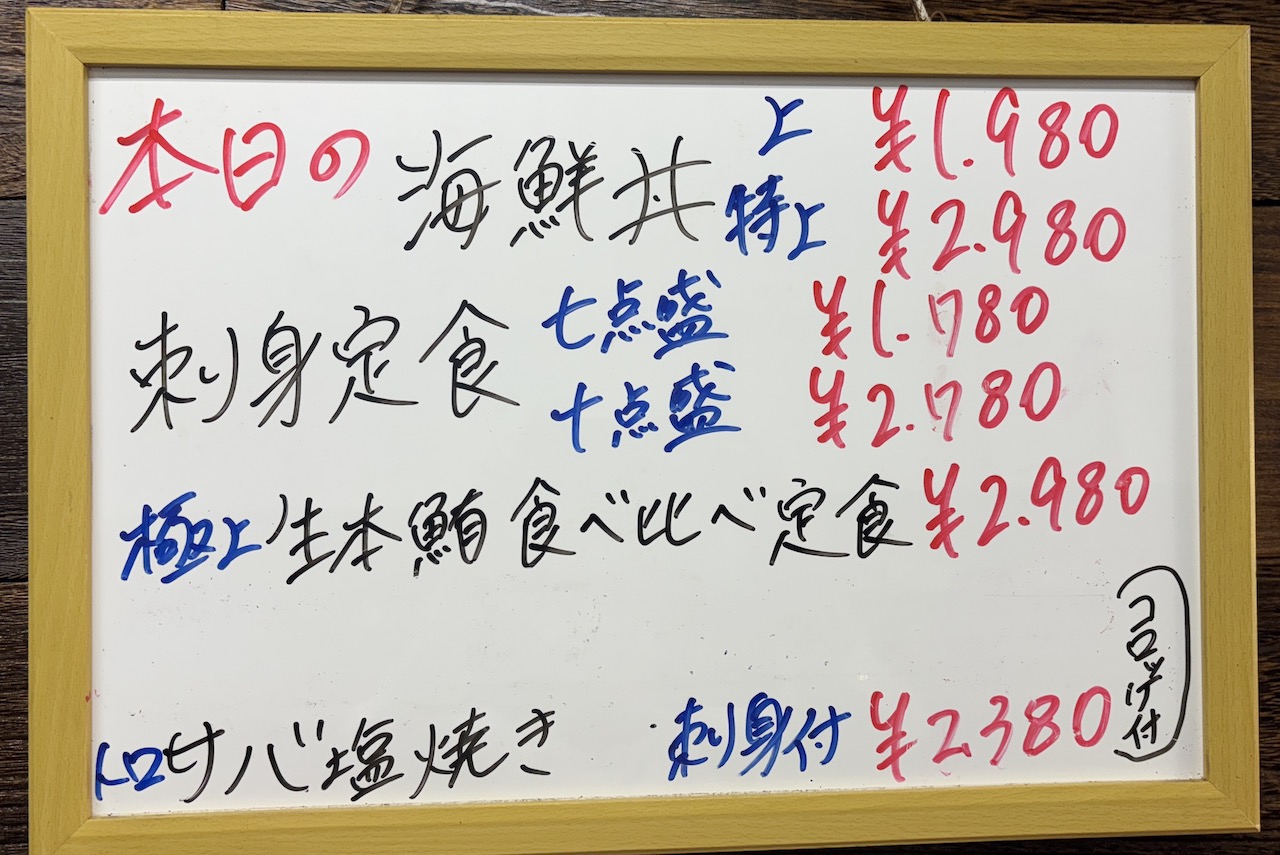 本日の海鮮丼 上 ¥1.980
特上 ¥2.980
刺身定食 七点盛 ¥1.780
十点盛 ¥2.780
極上生本鮪食べ比べ定食 ¥2.980
トロサバ塩焼き 刺身付 ¥2380
コロッケ付